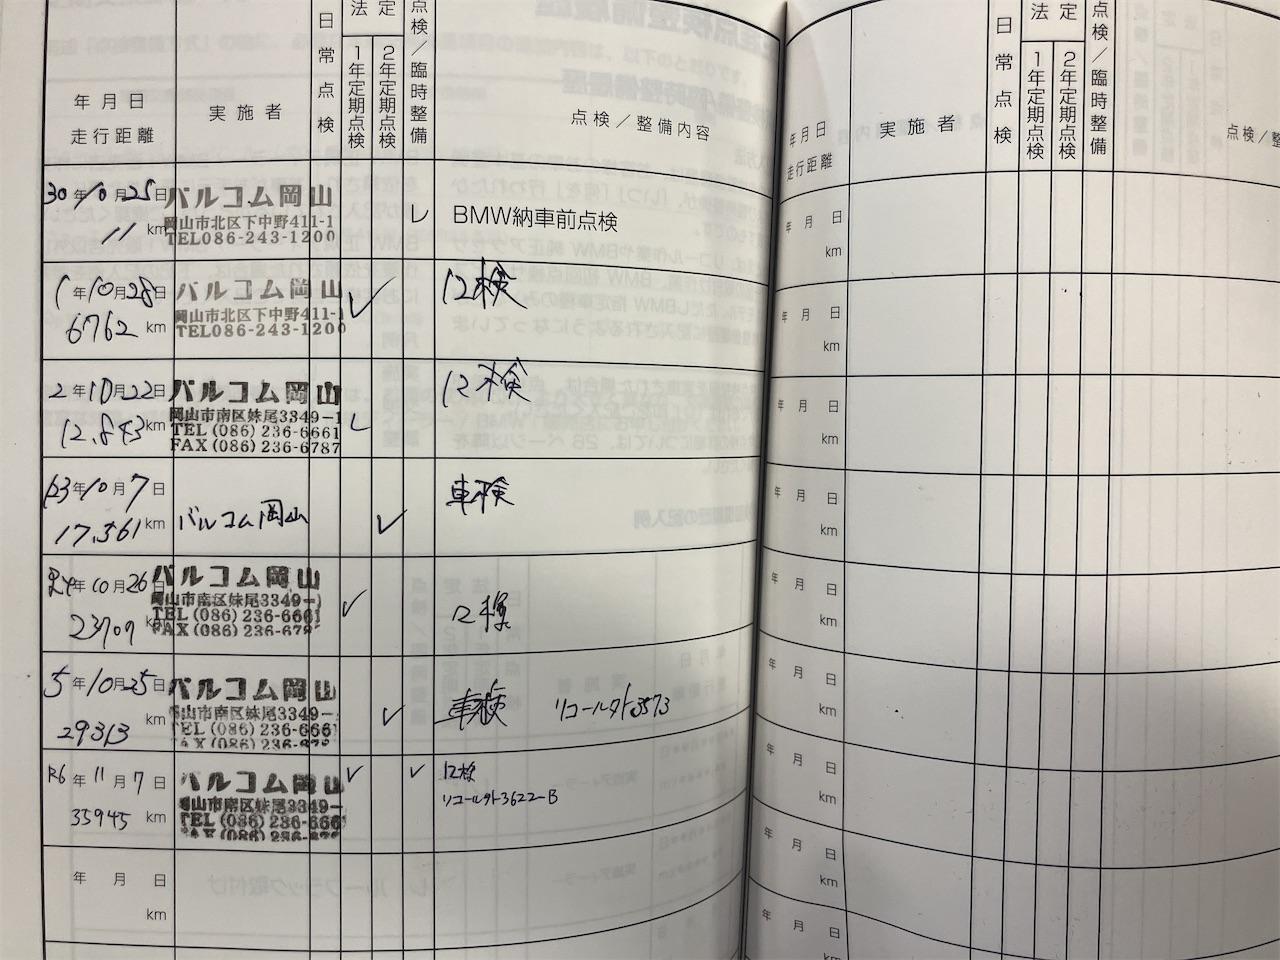 年月日
走行距離
実施者
日常点検
法定
1年定期点検
2年定期点検
点検/臨時整備
点検/整備内容
30年10月25日
11 km
バルコム岡山
岡山市北区下中野411-1
TEL086-243-1200
レ
BMW納車前点検
1年10月28日
6762 km
バルコム岡山
岡山市北区下中野411-1
TEL086-243-1200
レ
12検
2年10月22日
12,843 km
バルコム岡山
岡山市南区妹尾3349-1
TEL (086) 236-6661
FAX (086) 236-6787
レ
12検
R3年10月7日
17,561 km
バルコム岡山
レ
車検
R4年10月26日
23707 km
バルコム岡山
岡山市南区妹尾3349-1
TEL (086) 236-6661
FAX (086) 236-678
レ
12検
5年10月25日
29313 km
バルコム岡山
岡山市南区妹尾3349-
TEL (086) 236-666
FAX (086) 236-678
レ
車検 リコール外3573
R6年11月7日
35945 km
バルコム岡山
岡山市南区妹尾3349-
TEL (086) 236-666
レ
レ
12検
リコール外3622-B
年 月 日
km
年月日
走行距離
実施者
日常点検
法定
1年定期点検
2年定期点検
点検/臨時整備
点検/整
年 月 日
km
年 月 日
km
年 月 日
km
年 月 日
km
年 月 日
km
年 月 日
km
年 月 日
km
年 月 日
km
年 月 日
km